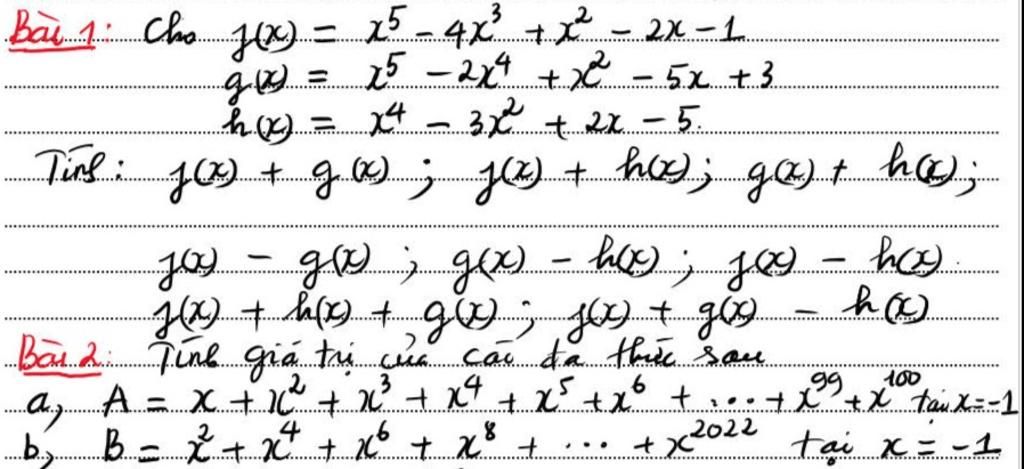 Bài 1: Cho f(x) = x⁵ - 4x³ + x² - 2x - 1
g(x) = x⁵ - 2x⁴ + x² - 5x + 3
h(x) = x⁴ - 3x² + 2x - 5.
Tính: f(x) + g(x) ; f(x) + h(x); g(x) + h(x);
f(x) - g(x) ; g(x) - h(x) ; f(x) - h(x).
f(x) + h(x) + g(x) ; f(x) + g(x) - h(x)
Bài 2: Tính giá trị của các đa thức sau
a, A = x + x² + x³ + x⁴ + x⁵ + x⁶ + ... + x⁹⁹ + x¹⁰⁰ tại x = -1
b, B = x² + x⁴ + x⁶ + x⁸ + ... + x²⁰²² tại x = -1